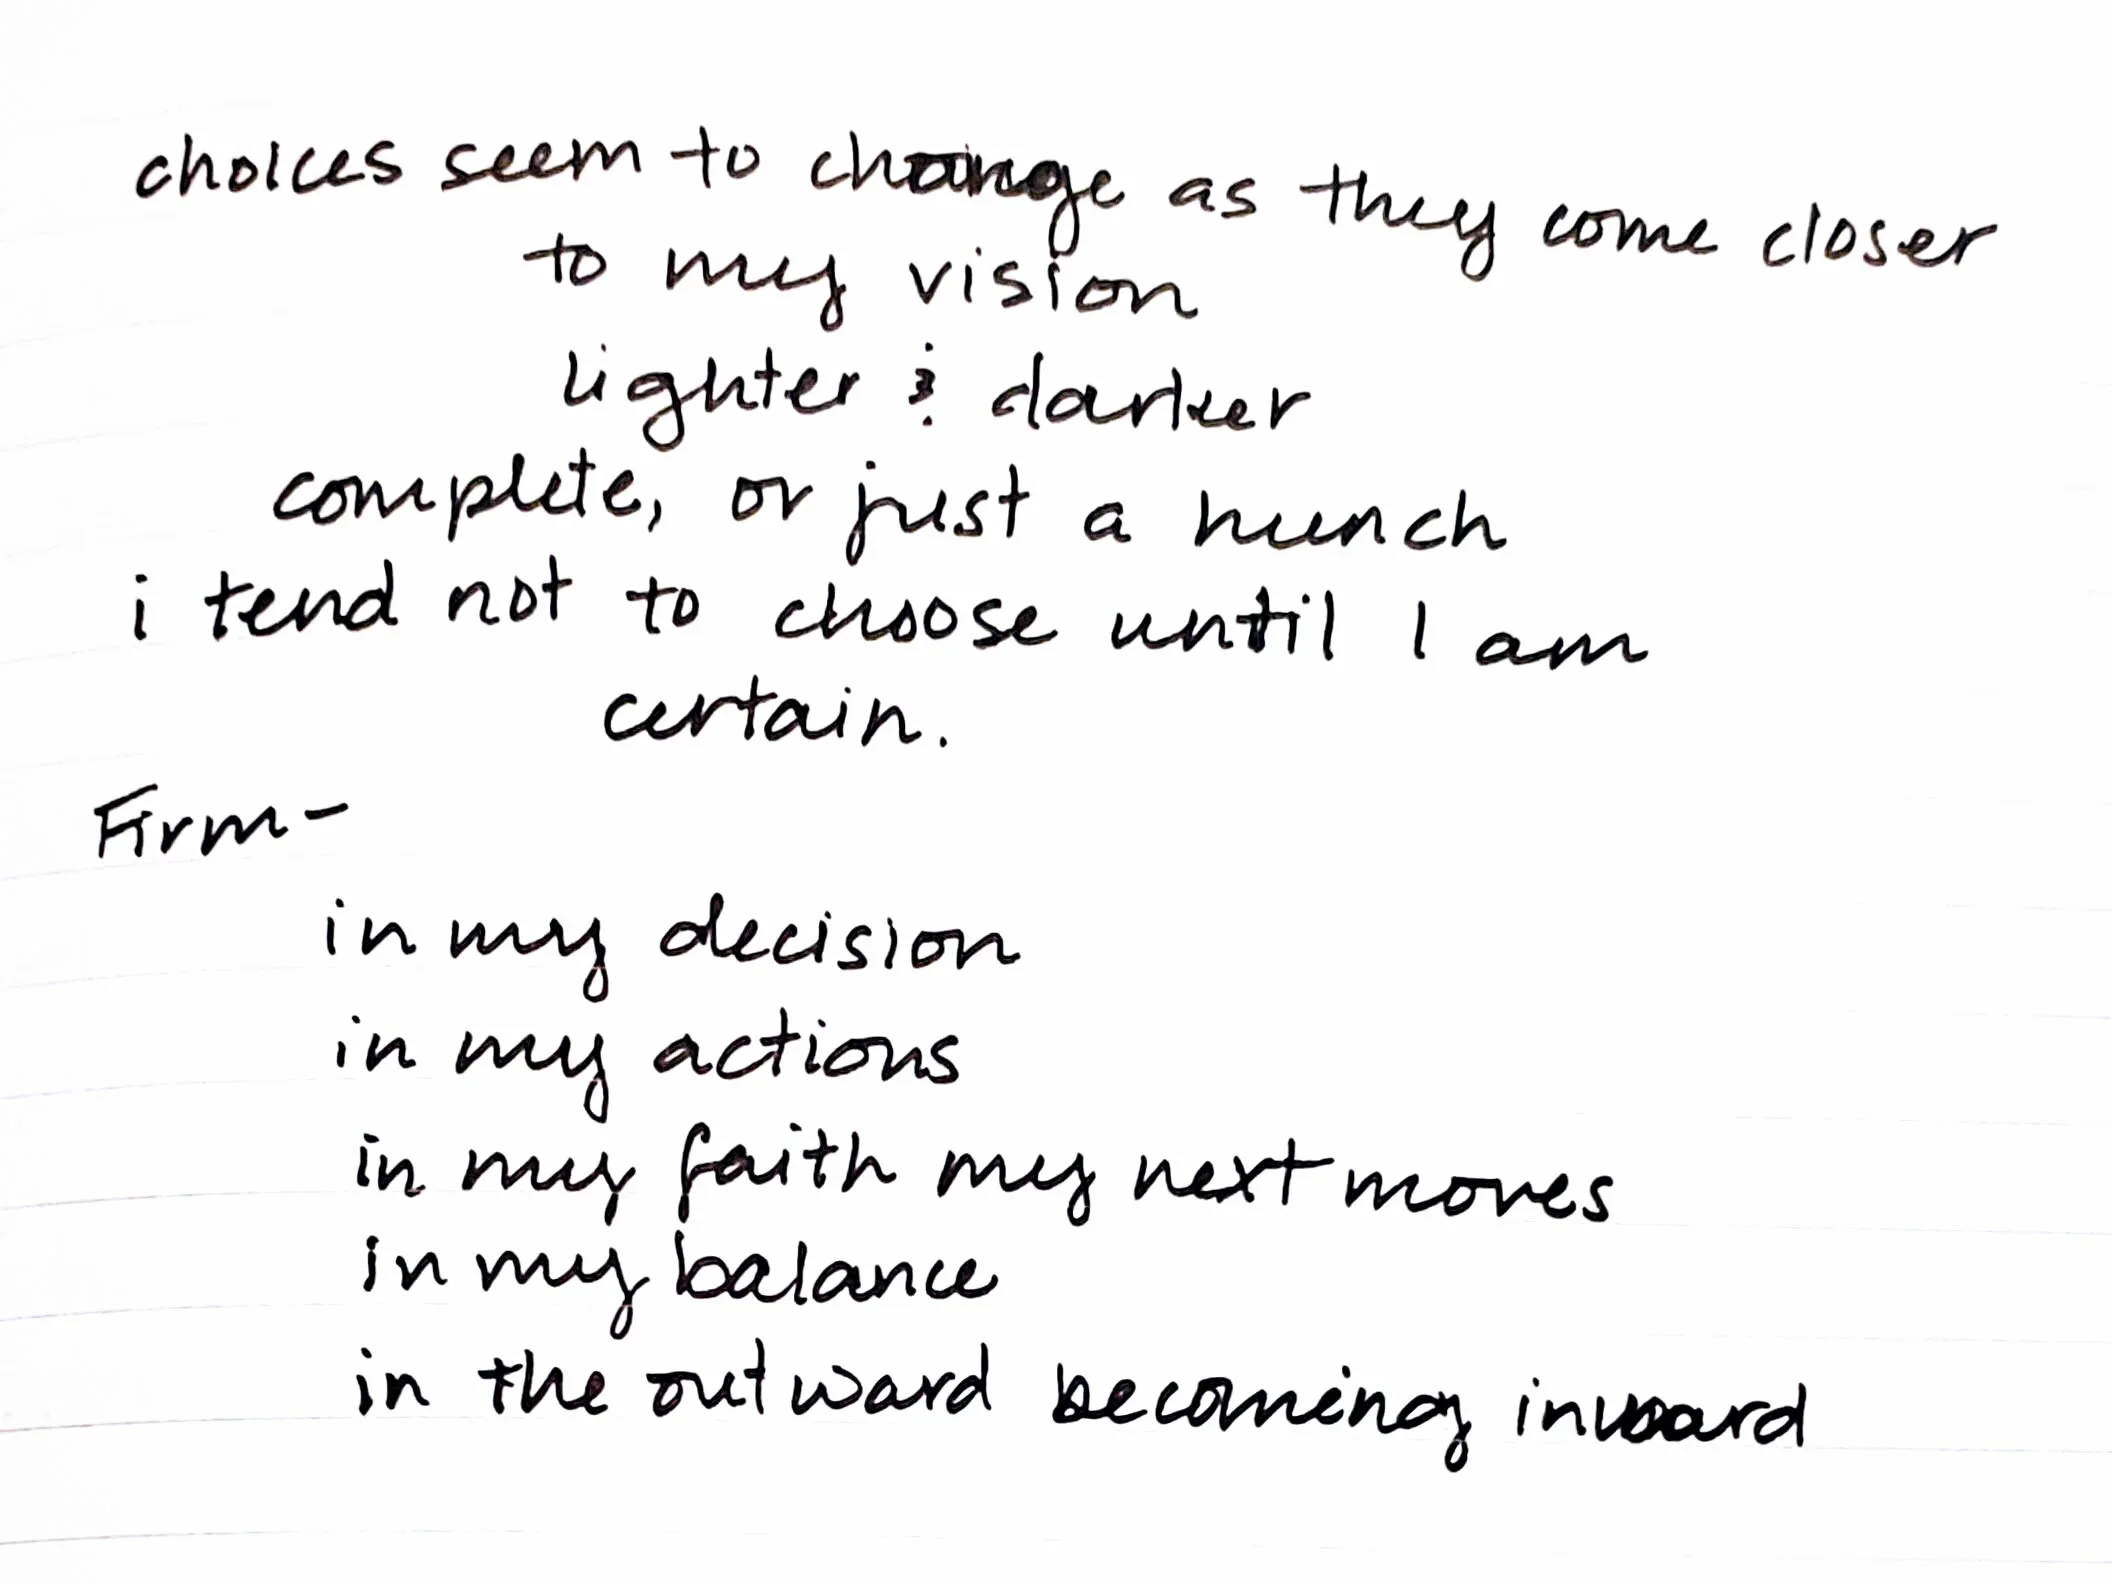 choices seem to change as they come closer
to my vision
lighter & darker
complete, or just a hunch
i tend not to choose until I am
certain.
Firm-
in my decision
in my actions
in my faith my next moves
in my balance
in the outward becoming inward